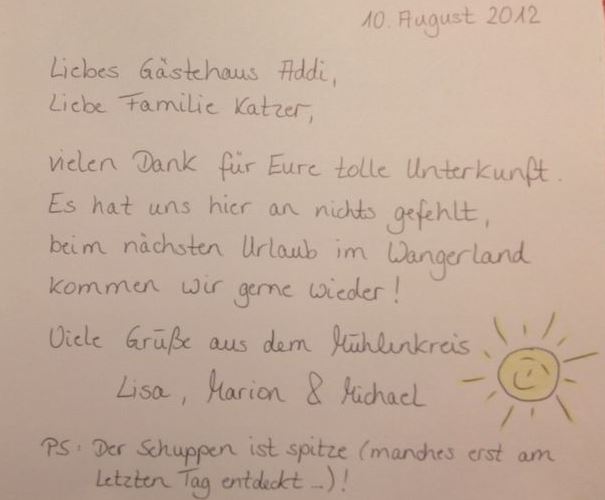 10. August 2012
Liebes Gästehaus Addi,
Liebe Familie Katzer,
vielen Dank für Eure tolle Unterkunft.
Es hat uns hier an nichts gefehlt,
beim nächsten Urlaub im Wangerland
kommen wir gerne wieder!
Viele Grüße aus dem Mühlenkreis
Lisa, Marion & Michael
PS: Der Schuppen ist spitze (manches erst am
letzten Tag entdeckt...)!